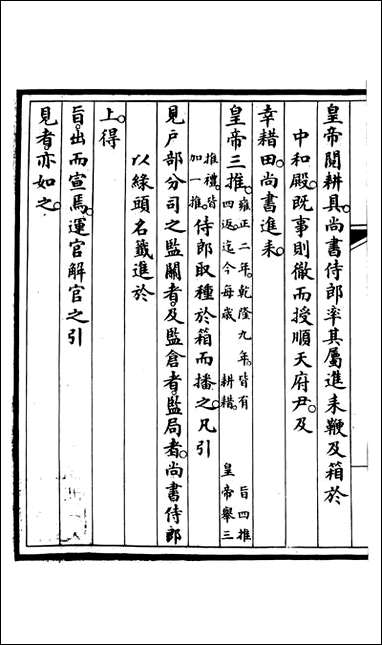 皇帝閱耕具。尚書侍郎率其屬進耒鞭及箱於
中和殿。既事則徹而授順天府尹。及
幸耤田。尚書進耒。
皇帝三推。
雍正二年。乾隆九年。皆有 旨四推
四返。迄今每歲 耕耤。 皇帝舉三
推禮。皆
加一推。
侍郎取種於箱而播之。凡引
見戶部分司之監關者。及監倉者。監局者。尚書侍郎
以綠頭名籤進於
上。得
旨。出而宣焉。運官解官之引
見者。亦如之。